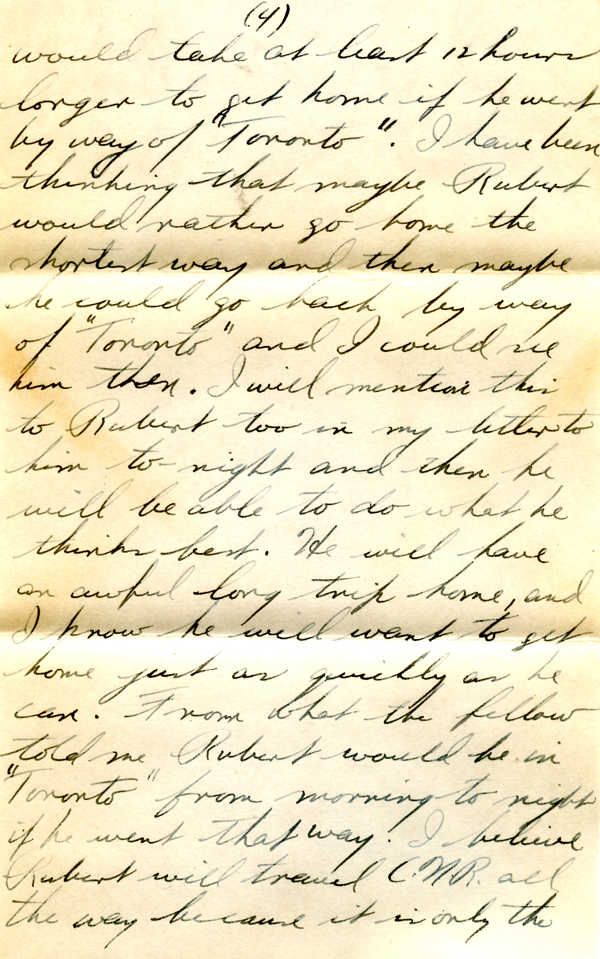 (4)
would take at least 12 hours
longer to get home if he went
by way of "Toronto". I have been
thinking that maybe Rubert
would rather go home the
shortest way and then maybe
he could go back by way
of "Toronto" and I could see
him then. I will mention this
to Rubert too in my letter to
him to-night and then he
will be able to do what he
thinks best. He will have
an awful long trip home, and
I know he will want to get
home just as quickly as he
can. From what the fellow
told me Rubert would be in
"Toronto" from morning to night
if he went that way. I believe
Rubert will travel C.N.R. all
the way because it is only the